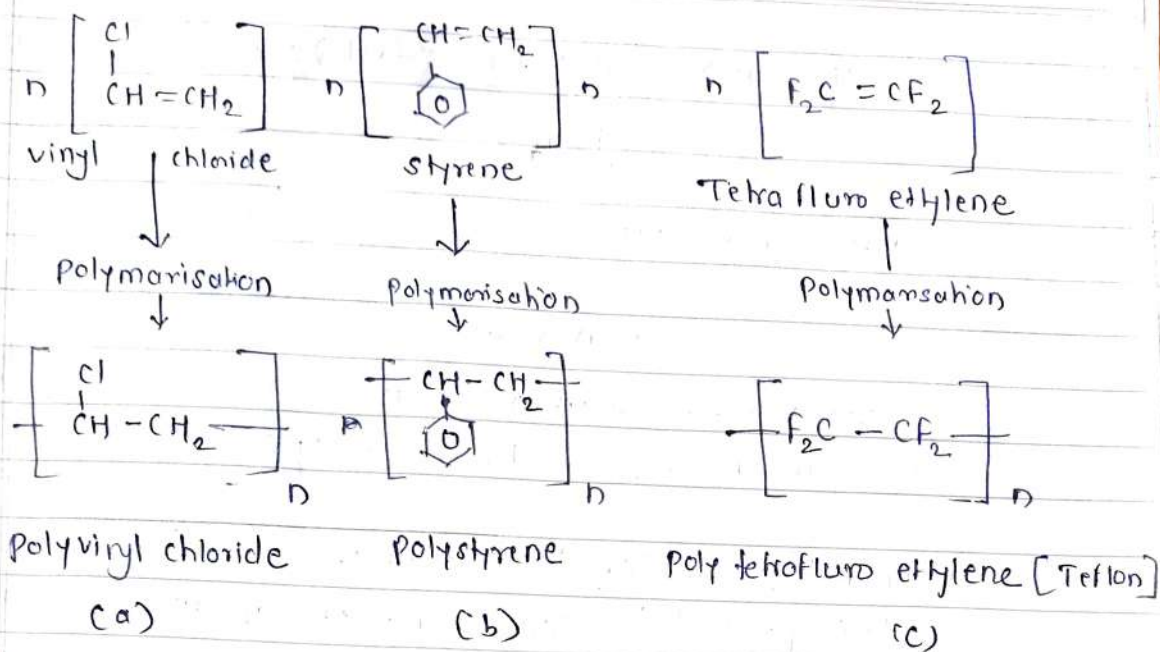 Cl
n [ CH = CH2 ]
vinyl chloride
polymarisation
Cl
[ CH - CH2 ] n
polyvinyl chloride
(a)
CH = CH2
n [ ] n
styrene
polymorisation
[ CH - CH2 ] n
polystyrene
(b)
n [ F2C = CF2 ]
Tetra fluro ethylene
polymarsation
[ F2C - CF2 ] n
poly tetrofluro ethylene [Teflon]
(c)